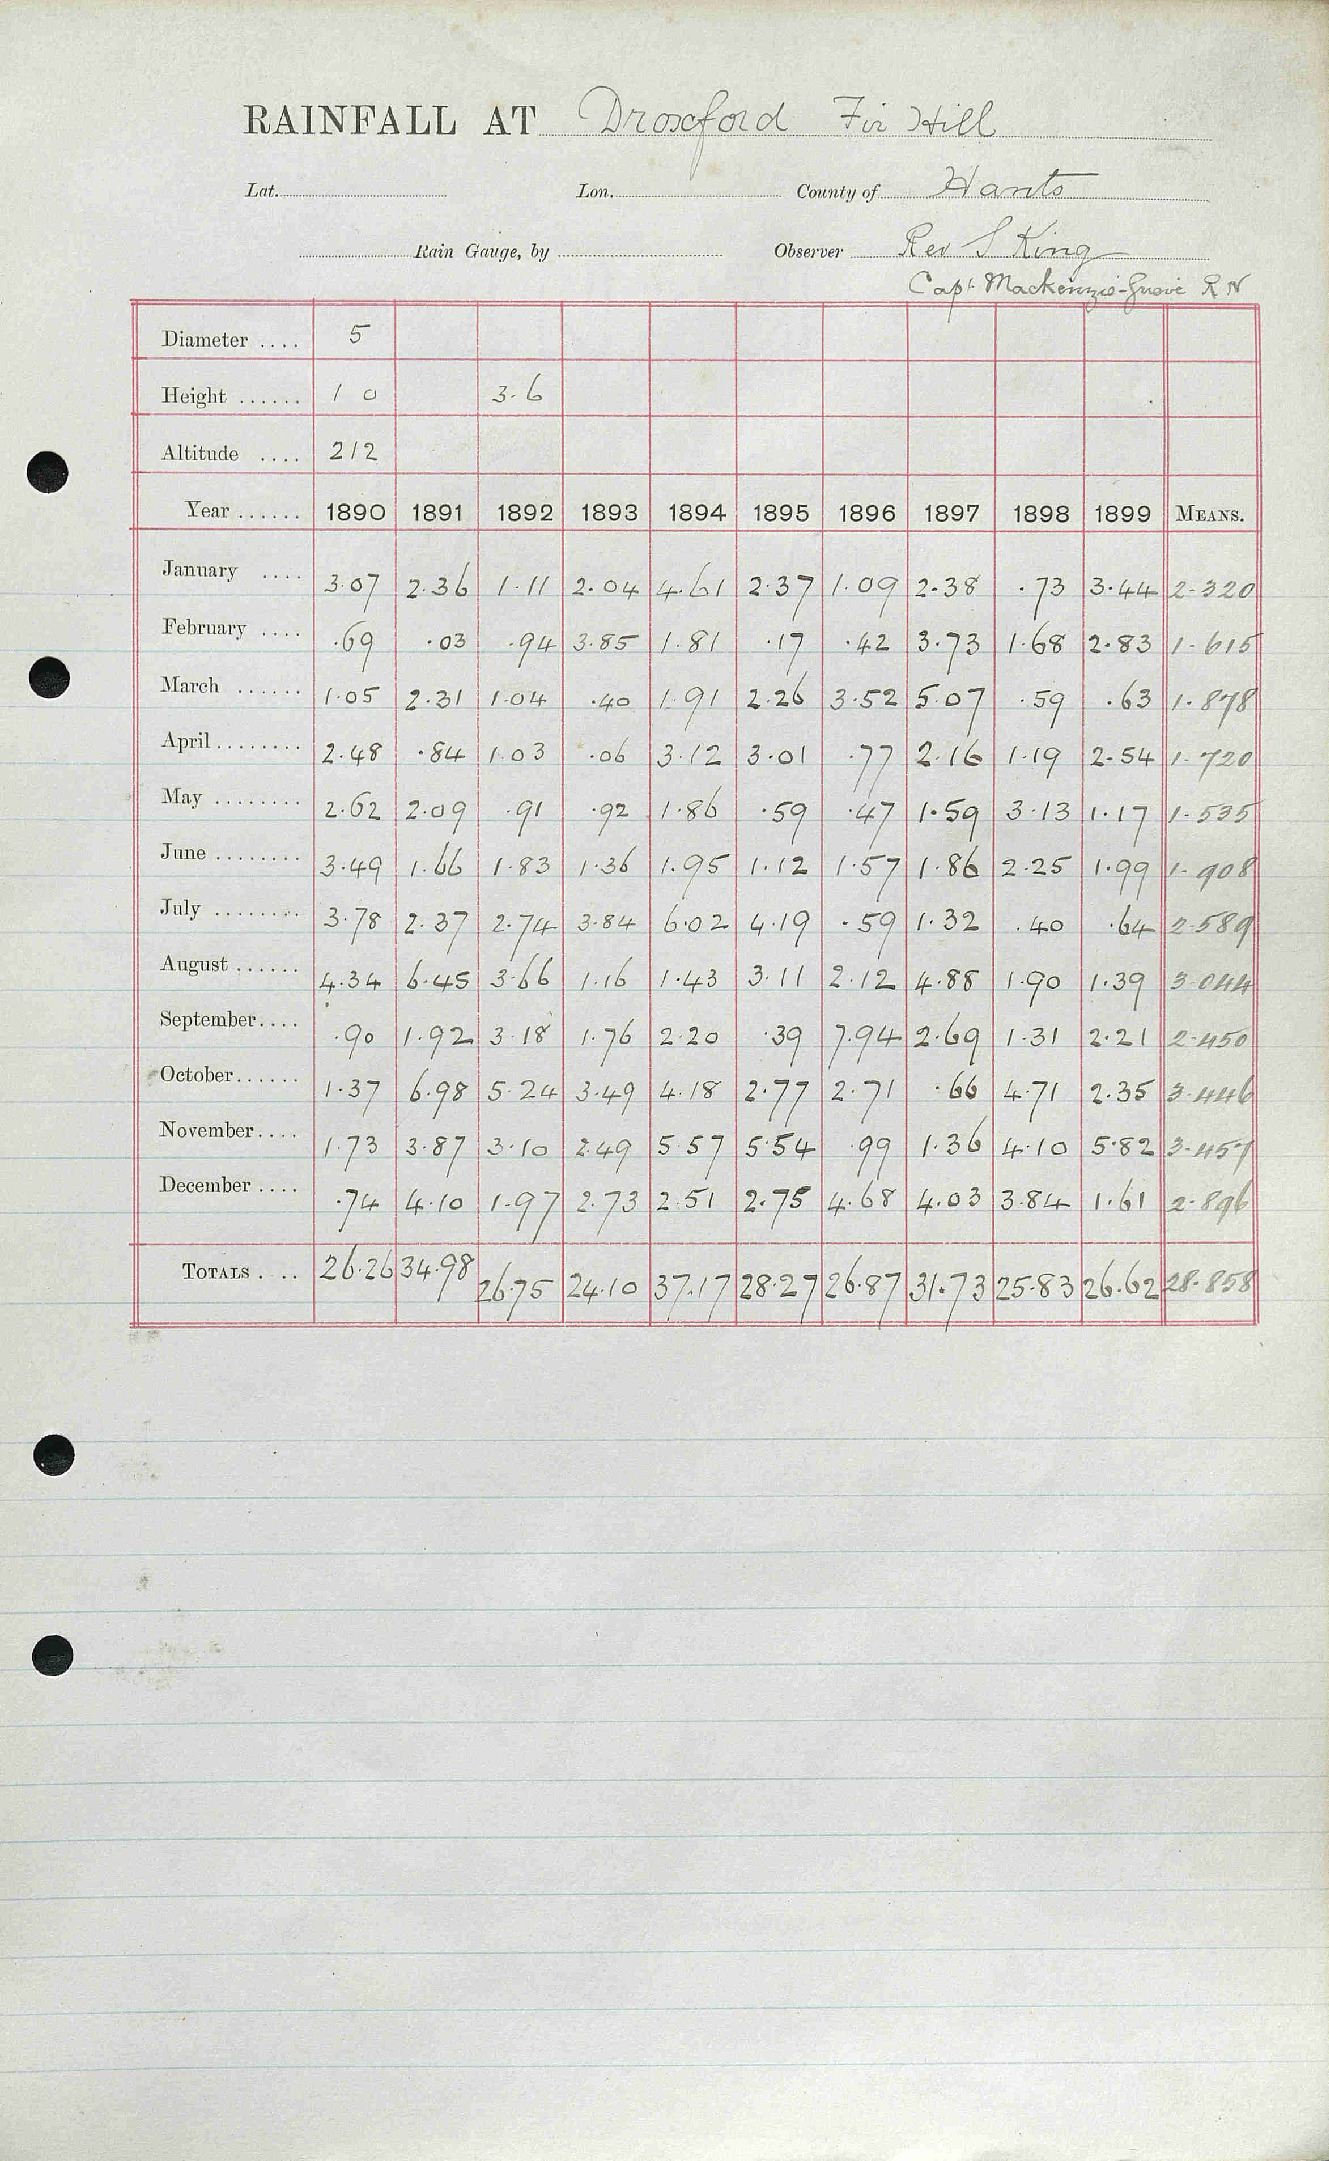 RAINFALL AT Droxford Fir Hill
Lat. Lon. County of Hants
Rain Gauge, by Observer Rev S King
Capt Mackenzie-Grove R N
Diameter .... 5
Height ...... 1 0 3.6
Altitude .... 212
Year ...... 1890 1891 1892 1893 1894 1895 1896 1897 1898 1899 MEANS.
January .... 3.07 2.36 1.11 2.04 4.61 2.37 1.09 2.38 .73 3.44 2.320
February .... .69 .03 .94 3.85 1.81 .17 .42 3.73 1.68 2.83 1.615
March ...... 1.05 2.31 1.04 .40 1.91 2.26 3.52 5.07 .59 .63 1.878
April ........ 2.48 .84 1.03 .06 3.12 3.01 .77 2.16 1.19 2.54 1.720
May ........ 2.62 2.09 .91 .92 1.86 .59 .47 1.59 3.13 1.17 1.535
June ........ 3.49 1.66 1.83 1.36 1.95 1.12 1.57 1.86 2.25 1.99 1.908
July ........ 3.78 2.37 2.74 3.84 6.02 4.19 .59 1.32 .40 .64 2.589
August ...... 4.34 6.45 3.66 1.16 1.43 3.11 2.12 4.88 1.90 1.39 3.044
September .... .90 1.92 3.18 1.76 2.20 .39 7.94 2.69 1.31 2.21 2.450
October ...... 1.37 6.98 5.24 3.49 4.18 2.77 2.71 .66 4.71 2.35 3.446
November .... 1.73 3.87 3.10 2.49 5.57 5.54 .99 1.36 4.10 5.82 3.457
December .... .74 4.10 1.97 2.73 2.51 2.75 4.68 4.03 3.84 1.61 2.896
TOTALS .... 26.26 34.98 26.75 24.10 37.17 28.27 26.87 31.73 25.83 26.62 28.858